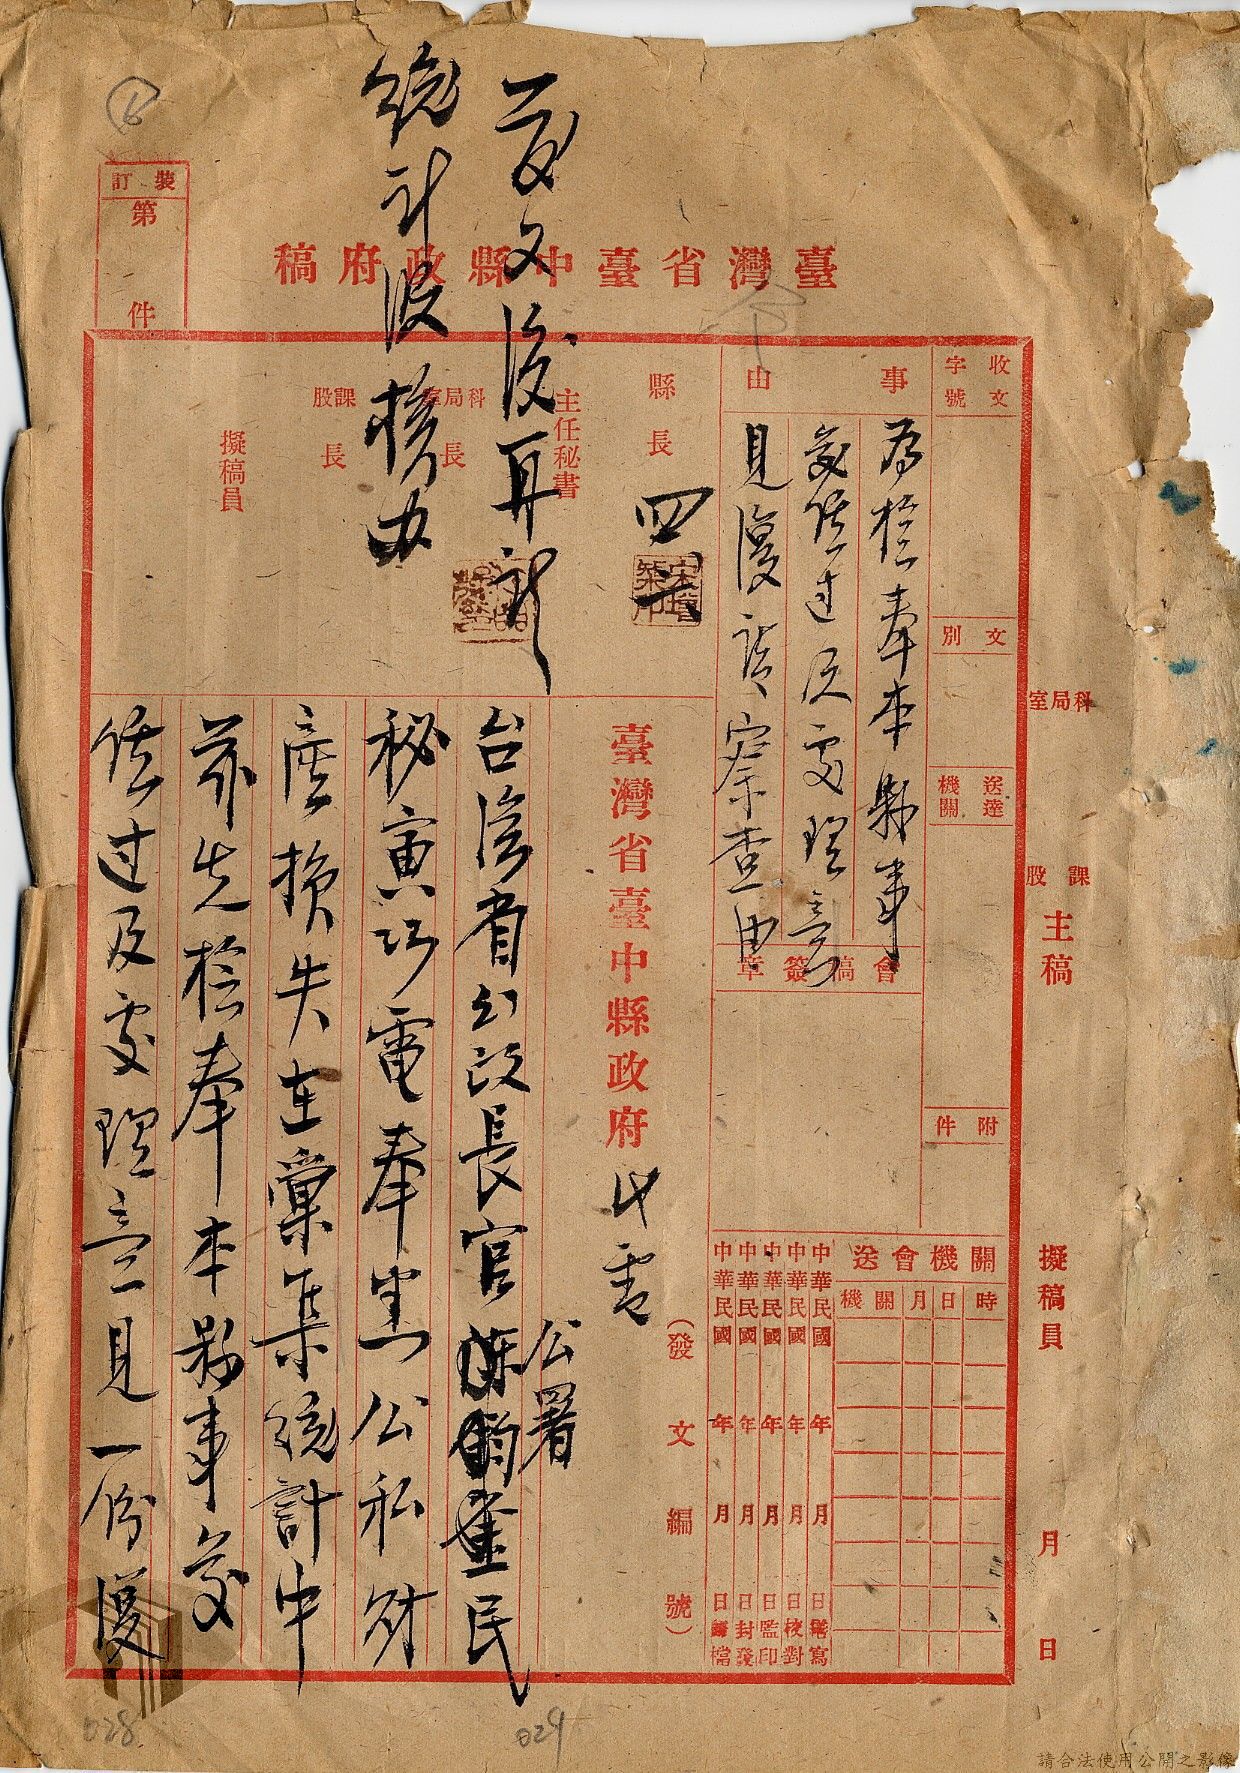 裝訂
第
件
臺灣省臺中縣政府稿
發文後再訂
統計股核办
收文
字號
文別
送達
機關
附件
事由
為檢奉本縣事
變經过及處理意
見復請察查由
會稿簽章
縣長
四
主任秘書
科局室長
課股長
擬稿員
科局室
課股
主稿
擬稿員
月
日
關機會送
時
日
月
機關
中華民國 年 月 日繕寫
中華民國 年 月 日校對
中華民國 年 月 日監印
中華民國 年 月 日封發
中華民國 年 月 日歸檔
(發文編號)
臺灣省臺中縣政府代電
公署
台灣省行政長官陳鈞鑒民
秘寅巧電奉悉公私財
產損失在彙集統計中
茲先檢奉本縣事變
經过及處理意見一份復
028
029
請合法使用公開之影像